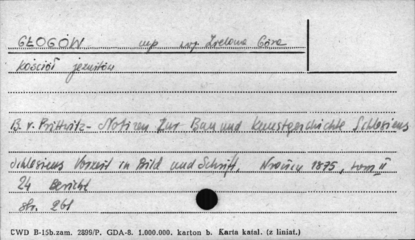 GŁOGÓW woj. Zielona Góra
kościół jezuitów
B. v. Prittwitz - Notizen zur Bau und Kunstgeschichte Schlesiens
Schlesiens Vorzeit in Bild und Schrift, 1875, tom II
24 Bericht
str. 261
CWD B-15b. zam. 2899/P. GDA-8. 1.000.000. karton b. Karta katal. (z liniat.)